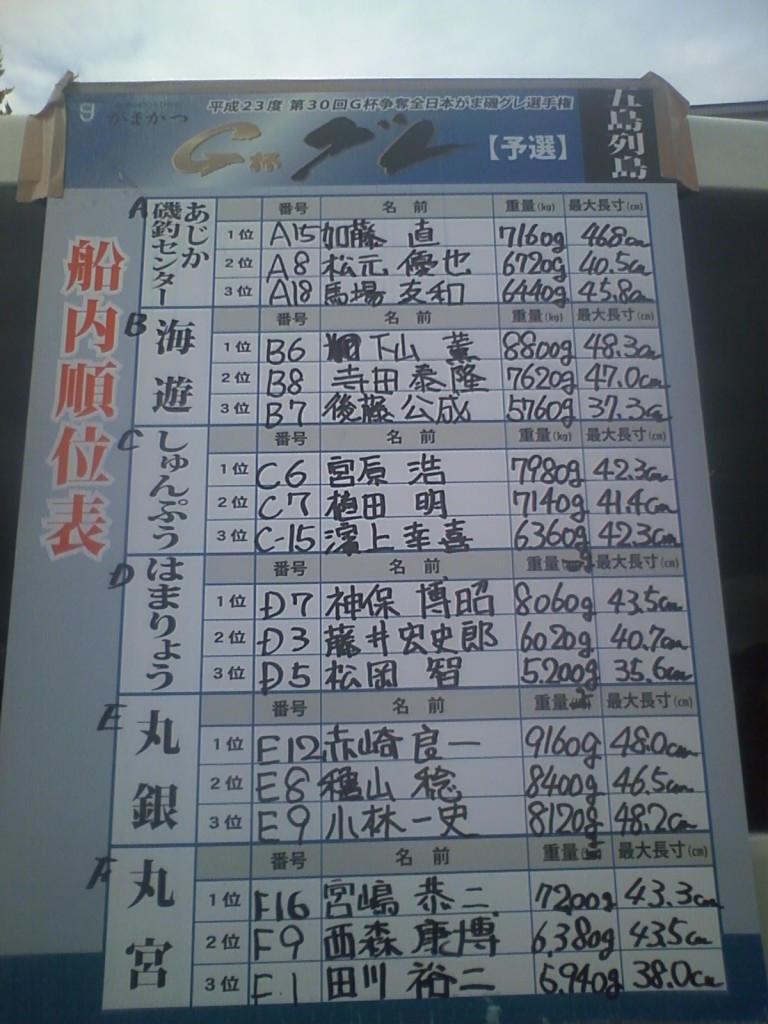 がまかつ
平成23度 第30回G杯争奪全日本がま磯グレ選手権
G杯 グレ
【予選】
五島列島
船内順位表
A
あじか磯釣センター
番号 名前 重量(kg) 最大長寸(cm)
1位 A15 加藤 直 7160g 46.8cm
2位 A8 松元 優也 6720g 40.5cm
3位 A18 馬場 友和 6440g 45.8cm
B
海遊
番号 名前 重量(kg) 最大長寸(cm)
1位 B6 下山 薫 8800g 48.3cm
2位 B8 寺田 泰隆 7620g 47.0cm
3位 B7 後藤 公成 5760g 37.3cm
C
しゅんぷう
番号 名前 重量(kg) 最大長寸(cm)
1位 C6 宮原 浩 7980g 42.3cm
2位 C7 植田 明 7140g 41.4cm
3位 C-15 濵上 幸喜 6360g 42.3cm
D
はまりょう
番号 名前 重量 最大長寸(cm)
1位 D7 神保 博昭 8060g 43.5cm
2位 D3 藤井 宏史郎 6020g 40.7cm
3位 D5 松岡 智 5.200g 35.6cm
E
丸銀
番号 名前 重量 最大長寸(cm)
1位 E12 赤崎 良一 9160g 48.0cm
2位 E8 穐山 稔 8400g 46.5cm
3位 E9 小林 一史 8120g 48.2cm
F
丸宮
番号 名前 重量 最大長寸(cm)
1位 F16 宮嶋 恭二 7200g 43.3cm
2位 F9 西森 康博 6.380g 43.5cm
3位 F1 田川 裕二 5.940g 38.0cm